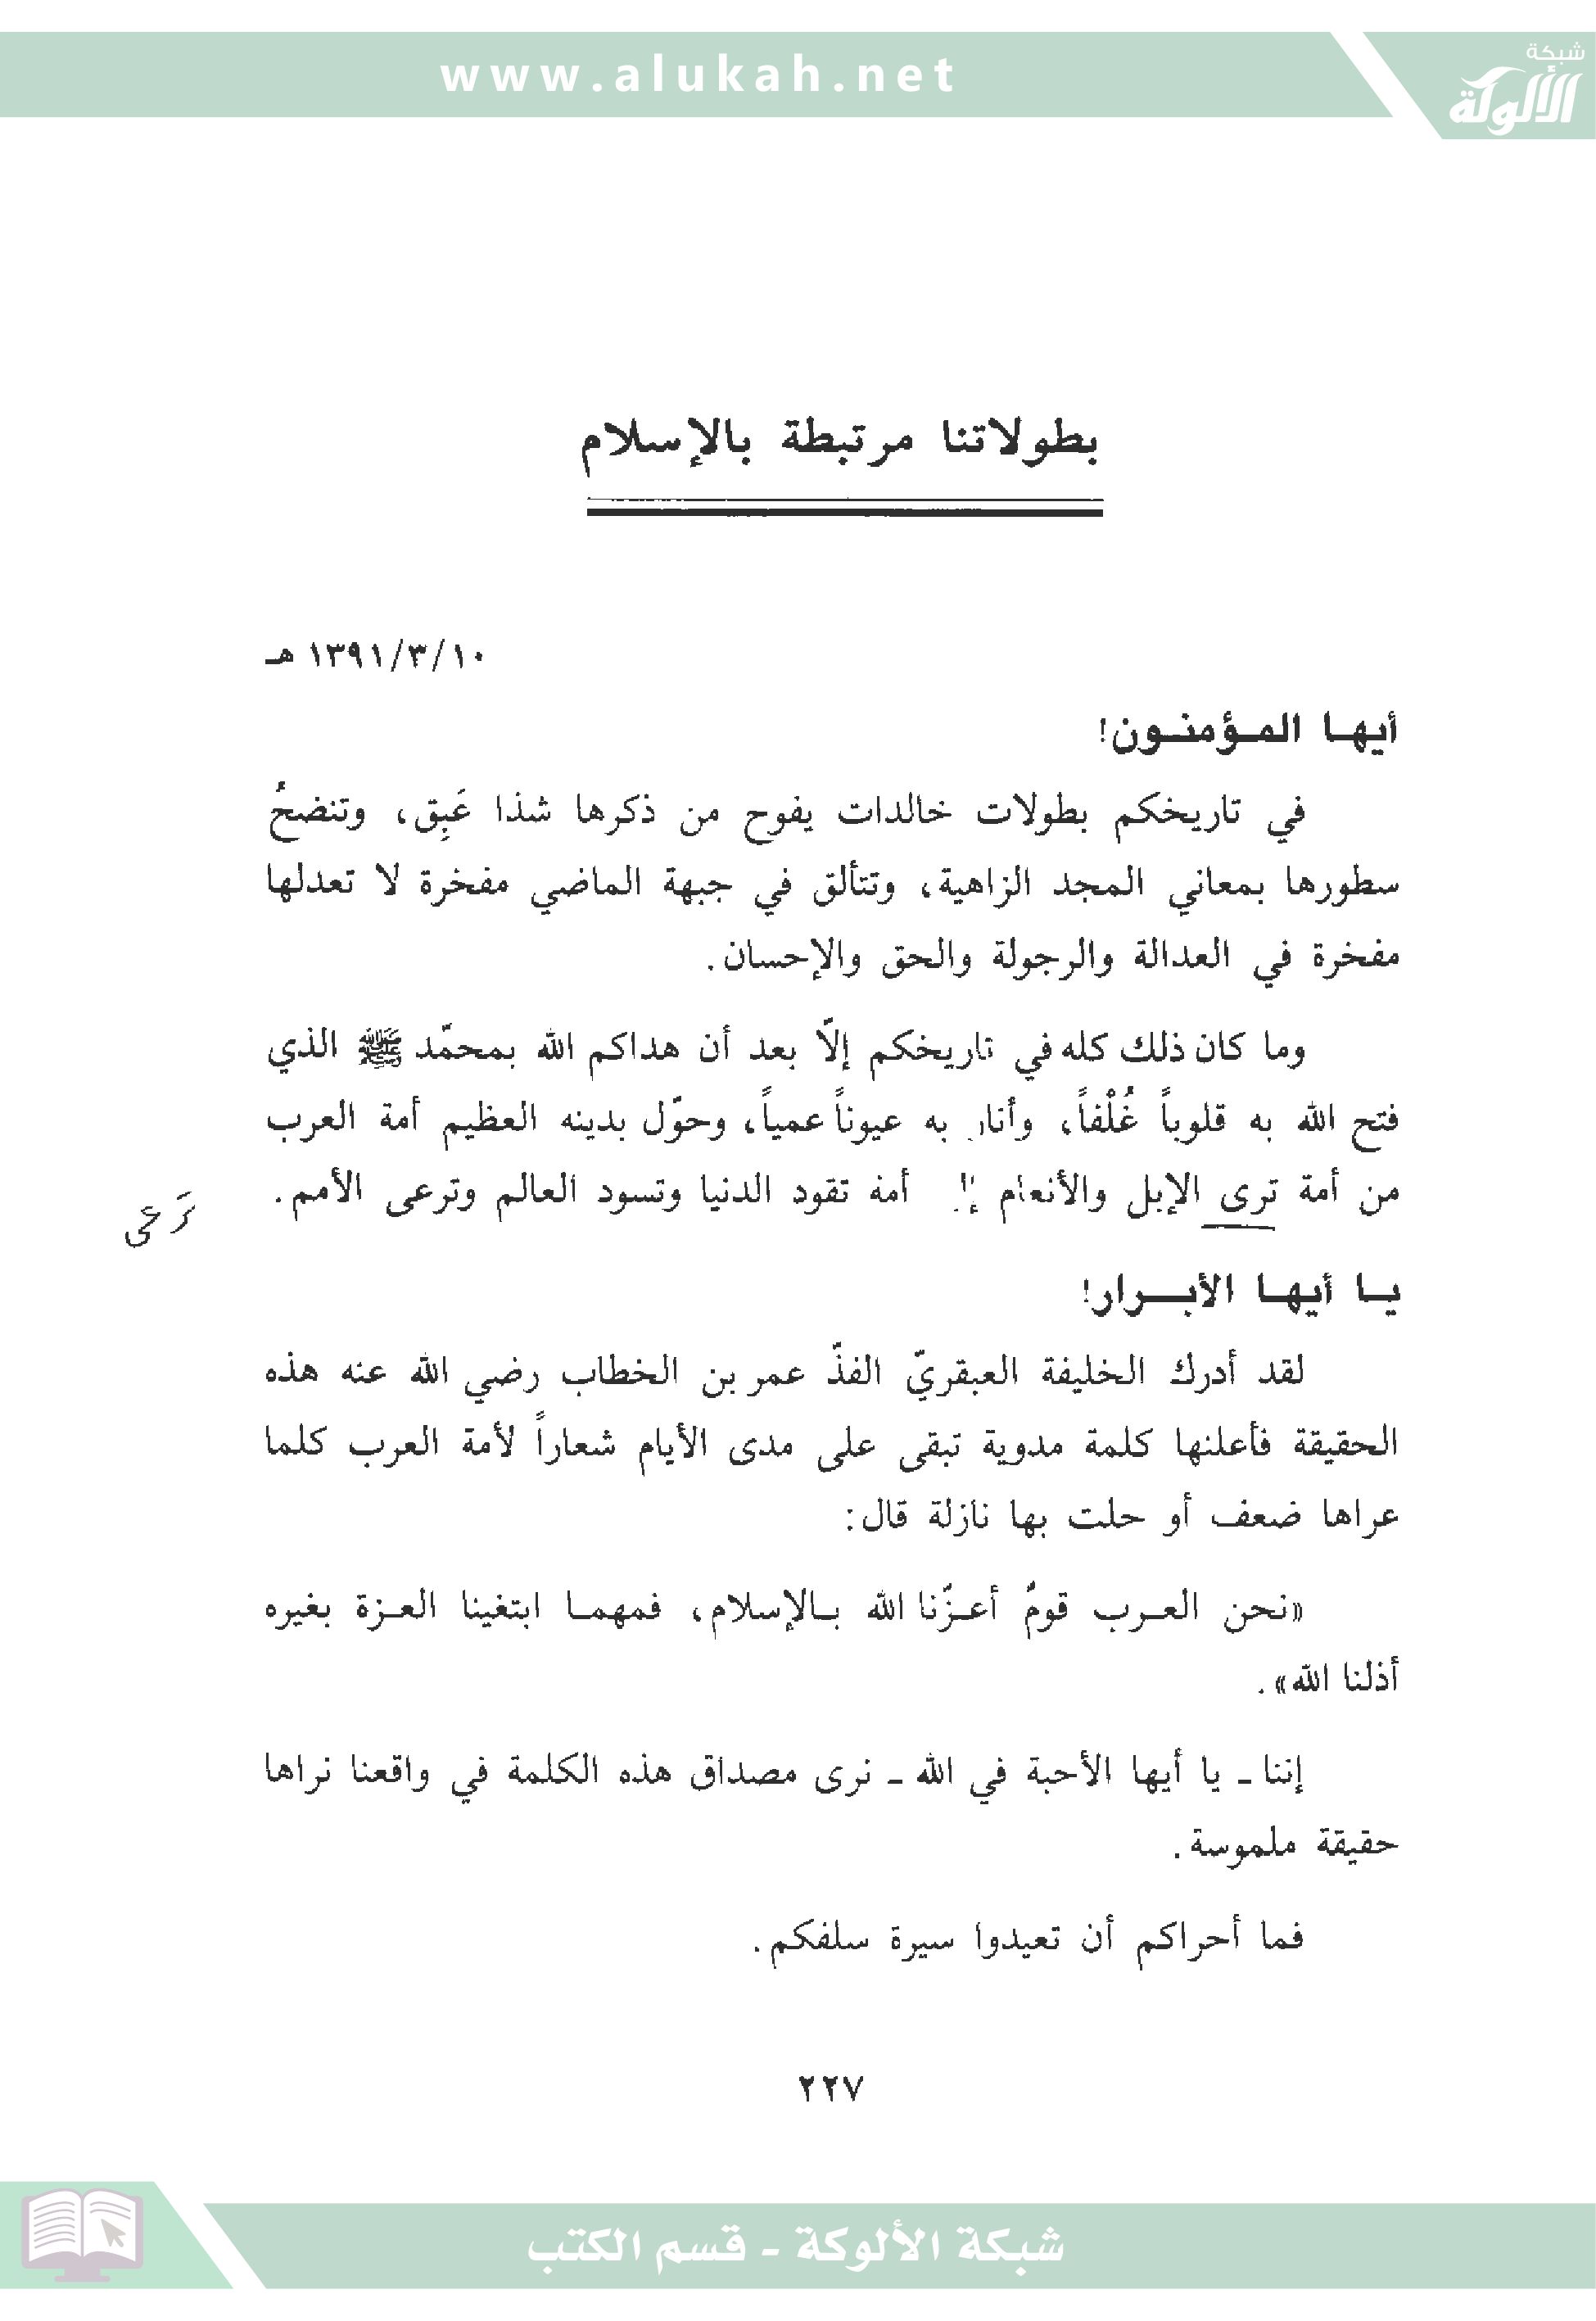 www.alukah.net
شبكة
الألوكة
بطولاتنا مرتبطة بالإسلام
١٣٩١/٣/١٠ هـ
أيهـا المـؤمنـون!
في تاريخكم بطولات خالدات يفوح من ذكرها شذا عَبِق، وتنضحُ
سطورها بمعاني المجد الزاهية، وتتألق في جبهة الماضي مفخرة لا تعدلها
مفخرة في العدالة والرجولة والحق والإحسان.
وما كان ذلك كله في تاريخكم إلاّ بعد أن هداكم الله بمحمّد ﷺ الذي
فتح الله به قلوباً غُلْفاً، وأنار به عيوناً عمياً، وحوّل بدينه العظيم أمة العرب
من أمة ترى الإبل والأنعام إلى أمة تقود الدنيا وتسود العالم وترعى الأمم.
تَرعى
يـا أيهـا الأبـــرار!
لقد أدرك الخليفة العبقريّ الفذّ عمر بن الخطاب رضي الله عنه هذه
الحقيقة فأعلنها كلمة مدوية تبقى على مدى الأيام شعاراً لأمة العرب كلما
عراها ضعف أو حلت بها نازلة قال:
«نحن العـرب قومٌ أعـزّنا الله بـالإسلام، فمهمـا ابتغينا العـزة بغيره
أذلنا الله».
إننا ـ يا أيها الأحبة في الله ـ نرى مصداق هذه الكلمة في واقعنا نراها
حقيقة ملموسة.
فما أحراكم أن تعيدوا سيرة سلفكم.
٢٢٧
شبكة الألوكة - قسم الكتب